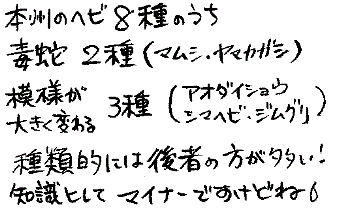 本州のヘビ8種のうち
毒蛇 2種(マムシ・ヤマカガシ)
模様が大きく変わる 3種(アオダイショウ シマヘビ・ジムグリ)
種類的には後者の方が多い!
知識として マイナーですけどね6